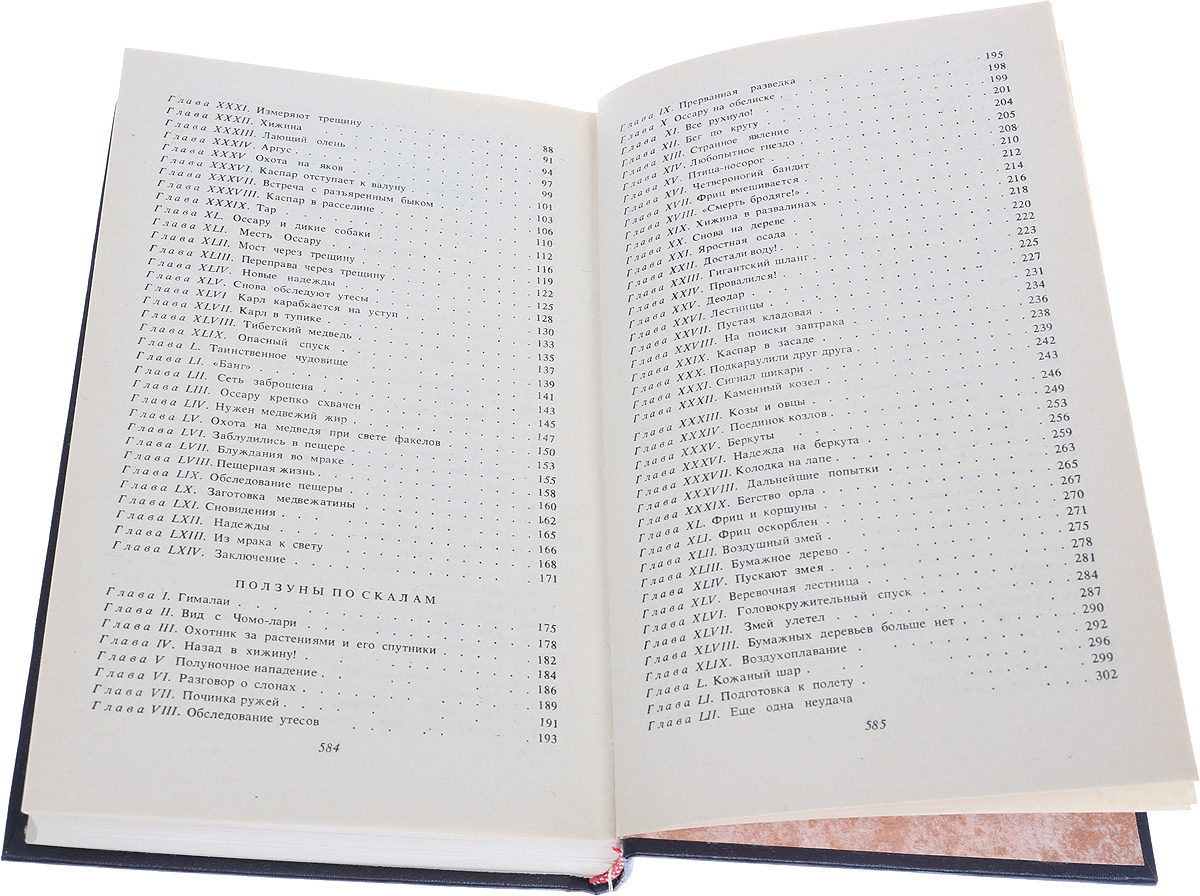 Глава XXXI. Измеряют трещину . . . 88
Глава XXXII. Хижина . . . 91
Глава XXXIII. Лающий олень . . . 94
Глава XXXIV. Аргус . . . 97
Глава XXXV Охота на яков . . . 99
Глава XXXVI. Каспар отступает к валуну . . . 101
Глава XXXVII. Встреча с разъяренным быком . . . 103
Глава XXXVIII. Каспар в расселине . . . 106
Глава XXXIX. Тар . . . 110
Глава XL. Оссару и дикие собаки . . . 112
Глава XLI. Месть Оссару . . . 116
Глава XLII. Мост через трещину . . . 119
Глава XLIII. Переправа через трещину . . . 122
Глава XLIV. Новые надежды . . . 125
Глава XLV. Снова обследуют утесы . . . 128
Глава XLVI Карл карабкается на уступ . . . 130
Глава XLVII. Карл в тупике . . . 133
Глава XLVIII. Тибетский медведь . . . 135
Глава XLIX. Опасный спуск . . . 137
Глава L. Таинственное чудовище . . . 139
Глава LI. «Банг» . . . 141
Глава LII. Сеть заброшена . . . 143
Глава LIII. Оссару крепко схвачен . . . 145
Глава LIV. Нужен медвежий жир . . . 147
Глава LV. Охота на медведя при свете факелов . . . 150
Глава LVI. Заблудились в пещере . . . 153
Глава LVII. Блуждания во мраке . . . 155
Глава LVIII. Пещерная жизнь . . . 158
Глава LIX. Обследование пещеры . . . 160
Глава LX. Заготовка медвежатины . . . 162
Глава LXI. Сновидения . . . 165
Глава LXII. Надежды . . . 166
Глава LXIII. Из мрака к свету . . . 168
Глава LXIV. Заключение . . . 171
ПОЛЗУНЫ ПО СКАЛАМ
Глава I. Гималаи . . . 175
Глава II. Вид с Чомо-лари . . . 178
Глава III. Охотник за растениями и его спутники . . . 182
Глава IV. Назад в хижину! . . . 184
Глава V Полуночное нападение . . . 186
Глава VI. Разговор о слонах . . . 189
Глава VII. Починка ружей . . . 191
Глава VIII. Обследование утесов . . . 193
584
Глава IX. Прерванная разведка . . . 195
Глава X. Оссару на обелиске . . . 198
Глава XI. Все рухнуло! . . . 199
Глава XII. Бег по кругу . . . 201
Глава XIII. Странное явление . . . 204
Глава XIV. Любопытное гнездо . . . 205
Глава XV. Птица-носорог . . . 208
Глава XVI. Четвероногий бандит . . . 210
Глава XVII. Фриц вмешивается . . . 212
Глава XVIII. «Смерть бродяге!» . . . 214
Глава XIX. Хижина в развалинах . . . 216
Глава XX. Снова на дереве . . . 218
Глава XXI. Яростная осада . . . 220
Глава XXII. Достали воду! . . . 222
Глава XXIII. Гигантский шланг . . . 223
Глава XXIV. Провалился! . . . 225
Глава XXV. Деодар . . . 227
Глава XXVI. Лестницы . . . 231
Глава XXVII. Пустая кладовая . . . 234
Глава XXVIII. На поиски завтрака . . . 236
Глава XXIX. Каспар в засаде . . . 238
Глава XXX. Подкараулили друг друга . . . 239
Глава XXXI. Сигнал шикари . . . 242
Глава XXXII. Каменный козел . . . 243
Глава XXXIII. Козы и овцы . . . 246
Глава XXXIV. Поединок козлов . . . 249
Глава XXXV. Беркуты . . . 253
Глава XXXVI. Надежда на беркута . . . 256
Глава XXXVII. Колодка на лапе . . . 259
Глава XXXVIII. Дальнейшие попытки . . . 263
Глава XXXIX. Бегство орла . . . 265
Глава XL. Фриц и коршуны . . . 267
Глава XLI. Фриц оскорблен . . . 270
Глава XLII. Воздушный змей . . . 271
Глава XLIII. Бумажное дерево . . . 275
Глава XLIV. Пускают змея . . . 278
Глава XLV. Веревочная лестница . . . 281
Глава XLVI. Головокружительный спуск . . . 284
Глава XLVII. Змей улетел . . . 287
Глава XLVIII. Бумажных деревьев больше нет . . . 290
Глава XLIX. Воздухоплавание . . . 292
Глава L. Кожаный шар . . . 296
Глава LI. Подготовка к полету . . . 299
Глава LII. Еще одна неудача . . . 302
585